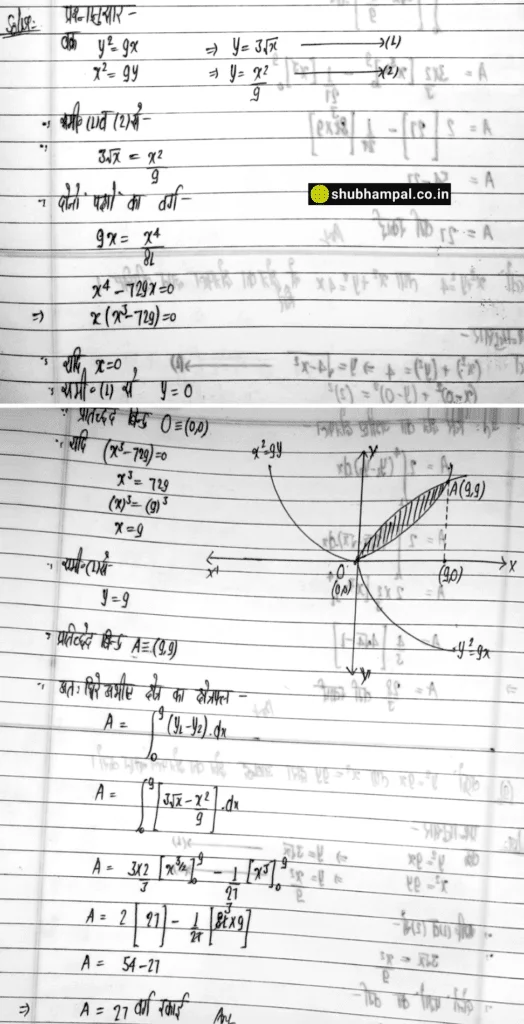 Solun:
प्रश्नानुसार –
वक्र y² = 9x ⇒ y = 3√x ⟶ (1)
x² = 9y ⇒ y = x²/9 ⟶ (2)
∵ समी० (1) व (2) से –
∵ 3√x = x²/9
दोनों पक्षों का वर्ग –
shubhampal.co.in
9x = x⁴/81
x⁴ – 729x = 0
⇒ x (x³ – 729) = 0
∵ यदि x = 0
∴ समी० (1) से y = 0
∵ प्रतिच्छेद बिन्दु O ≡ (0,0)
∵ यदि (x³ – 729) = 0
x³ = 729
(x)³ = (9)³
x = 9
समी० (1) से
y = 9
∵ प्रतिच्छेद बिन्दु A ≡ (9,9)
x² = 9y
Y
A(9,9)
X' O (0,0) (9,0) X
y² = 9x
Y'
∵ अतः घिरे अभीष्ट क्षेत्र का क्षेत्रफल –
A = ∫₀⁹ (y₁ – y₂).dx
A = ∫₀⁹ [3√x – x²/9].dx
A = 3×2/3 [x^3/2]₀⁹ – 1/27 [x³]₀⁹
A = 2 [27] – 1/27 [81×9]
A = 54 – 27
⇒ A = 27 वर्ग इकाई Ans